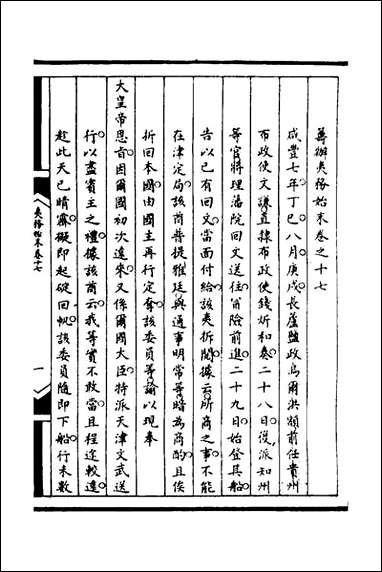 籌辦夷務始末卷之十七
咸豐七年丁巳八月庚戌長蘆鹽政烏爾洪額前任貴州
布政使文謙直隸布政使錢炘和奏二十八日復派知州
等官將理藩院回文送往冒險前進二十九日始登其船
告以已有回文當面付給該夷拆閱據云所商之事不能
在津定局該酋普提雅廷與通事明常等暗為商酌且俟
折回本國由國主再行定奪該委員等諭以現奉
大皇帝恩旨因爾國初次遠來又係爾國大臣特派天津文武送
行以盡賓主之禮據該酋云我等實不敢當且程途較遠
趁此天已晴霽礙即起碇回帆該委員隨即下船行未數
夷務始末卷十七
一